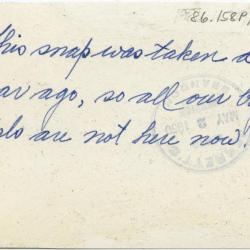 86.158P
his snap was taken a
ar ago, so all our b
are not here now!
MAY 2 1930